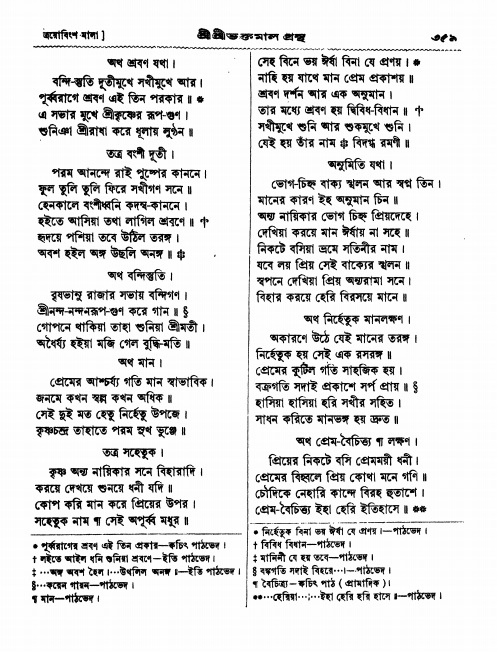 ত্রয়োবিংশ মালা ]
শ্রীশ্রীভক্তমাল গ্রন্থ
৩৫৯
অথ শ্রবণ যথা ।
বন্দি-স্তুতি দূতীমুখে সখীমুখে আর ।
পূর্ব্বরাগে শ্রবণ এই তিন পরকার ॥ *
এ সভার মুখে শ্রীকৃষ্ণের রূপ-গুণ ।
শুনিঞা শ্রীরাধা করে ধূলায় লুণ্ঠন ॥
তত্র বংশী দূতী ।
পরম আনন্দে রাই পুষ্পের কাননে ।
ফুল তুলি তুলি ফিরে সখীগণ সনে ॥
হেনকালে বংশীধ্বনি কদম্ব-কাননে ।
হইতে আসিয়া তথা লাগিল শ্রবণে ॥ †
হৃদয়ে পশিয়া তবে উঠিল তরঙ্গ ।
অবশ হইল অঙ্গ উছলি অনঙ্গ ॥ ‡
অথ বন্দিস্তুতি ।
বৃষভানু রাজার সভায় বন্দিগণ ।
শ্রীনন্দ-নন্দনরূপ-গুণ করে গান ॥ §
গোপনে থাকিয়া তাহা শুনিয়া শ্রীমতী ।
অধৈর্য্য হইয়া মজি গেল বুদ্ধি-মতি ॥
অথ মান ।
প্রেমের আশ্চর্য্য গতি মান স্বাভাবিক ।
জনমে কখন স্বল্প কখন অধিক ॥
সেই দুই মত হেতু নির্হেতু উপজে ।
কৃষ্ণচন্দ্র তাহাতে পরম সুখ ভুঞ্জে ॥
তত্র সহেতুক ।
কৃষ্ণ অন্য নায়িকার সনে বিহারাদি ।
করয়ে দেখয়ে শুনয়ে ধনী যদি ॥
কোপ করি মান করে প্রিয়ের উপর ।
সহেতুক নাম ¶ সেই অপূর্ব্ব মধুর ॥
* পূর্ব্বরাগের শ্রবণ এই তিন প্রকার—কচিৎ পাঠভেদ ।
† লইতে আইল ধনি শুনিয়া শ্রবণে—ইতি পাঠভেদ ।
‡ ···অঙ্গ অবশ হৈল ।···উথলিল অনঙ্গ ॥—ইতি পাঠভেদ ।
§ ···করেন গায়ন—পাঠভেদ ।
¶ মান—পাঠভেদ ।
সেহ বিনে ভয় ঈর্ষা বিনা যে প্রণয় । *
নাহি হয় যাথে মান প্রেম প্রকাশয় ॥
শ্রবণ দর্শন আর এক অনুমান ।
তার মধ্যে শ্রবণ হয় দ্বিবিধ-বিধান ॥ †
সখীমুখে শুনি আর শুকমুখে শুনি ।
যেই হয় তাঁর নাম ‡ বিদগ্ধ রমণী ॥
অনুমিতি যথা ।
ভোগ-চিহ্ন বাক্য স্খলন আর স্বপ্ন তিন ।
মানের কারণ ইহ অনুমান চিন ॥
অন্য নায়িকার ভোগ চিহ্ন প্রিয়দেহে ।
দেখিয়া করয়ে মান ঈর্ষায় না সহে ॥
নিকটে বসিয়া ভ্রমে সতিনীর নাম ।
যবে লয় প্রিয় সেই বাক্যের স্খলন ॥
স্বপনে দেখিয়া প্রিয় অন্যরামা সনে ।
বিহার করয়ে হেরি বিরসয়ে মানে ॥
অথ নির্হেতুক মানলক্ষণ ।
অকারণে উঠে যেই মানের তরঙ্গ ।
নির্হেতুক হয় সেই এক রসরঙ্গ ॥
প্রেমের কুটিল গতি সাহজিক হয় ।
বক্রগতি সদাই প্রকাশে সর্প প্রায় ॥ §
হাসিয়া হাসিয়া হরি সখীর সহিত ।
সাধন করিতে মানভঙ্গ হয় দ্রুত ॥
অথ প্রেম-বৈচিত্ত্য ¶ লক্ষণ ।
প্রিয়ের নিকটে বসি প্রেমময়ী ধনী ।
প্রেমের বিহ্বলে প্রিয় কোথা মনে গণি ॥
চৌদিকে নেহারি কান্দে বিরহ হুতাশে ।
প্রেম-বৈচিত্ত্য ইহা হেরি ইতিহাসে ॥ **
* নির্হেতুক বিনা ভয় ঈর্ষা যে প্রণয় ।—পাঠভেদ ।
† বিবিধ বিধান—পাঠভেদ ।
‡ মানিনী যে হয় তবে—পাঠভেদ ।
§ বঙ্কগতি সদাই বিহরে···।—পাঠভেদ ।
¶ বৈচিত্র্য—কচিৎ পাঠ ( প্রামাদিক ) ।
**···হেরিয়া···;···ইহা হেরি হরি হাসে ॥—পাঠভেদ ।